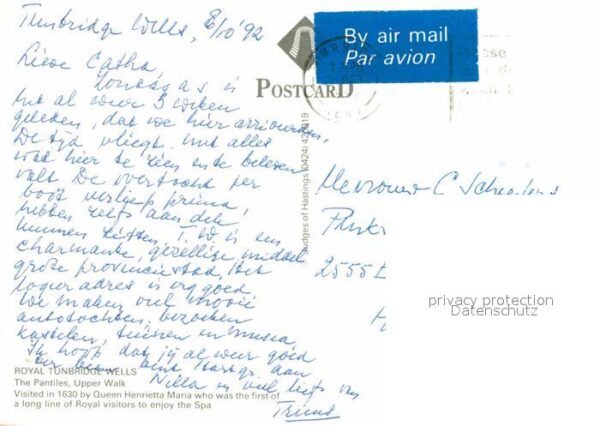 Tunbridge Wells, 8/10 '92
Lieve Catha
Zondag a.s is
het al weer 3 weken
geleden, dat we hier arriveerden.
De tijd vliegt, met alles
wat hier te zien en te beleven
valt. De overtocht per
boot verliep prima,
hebben zelfs aan dek
kunnen zitten. T. W is een
charmante, gezellige middel
grote provinciestad, Het
logeer adres is erg goed
We maken veel mooie
autotochten, bezoeken
kastelen, tuinen en musea,
Ik hoop dat jij al weer goed
ter been bent. Hartgr. aan
Nilla en veel liefs van
Truus
By air mail
Par avion
POSTCARD
Judges of Hastings (0424) 420919
Mevrouw C
2555
privacy protection
Datenschutz
ROYAL TUNBRIDGE WELLS
The Pantiles, Upper Walk
Visited in 1630 by Queen Henrietta Maria who was the first of
a long line of Royal visitors to enjoy the Spa